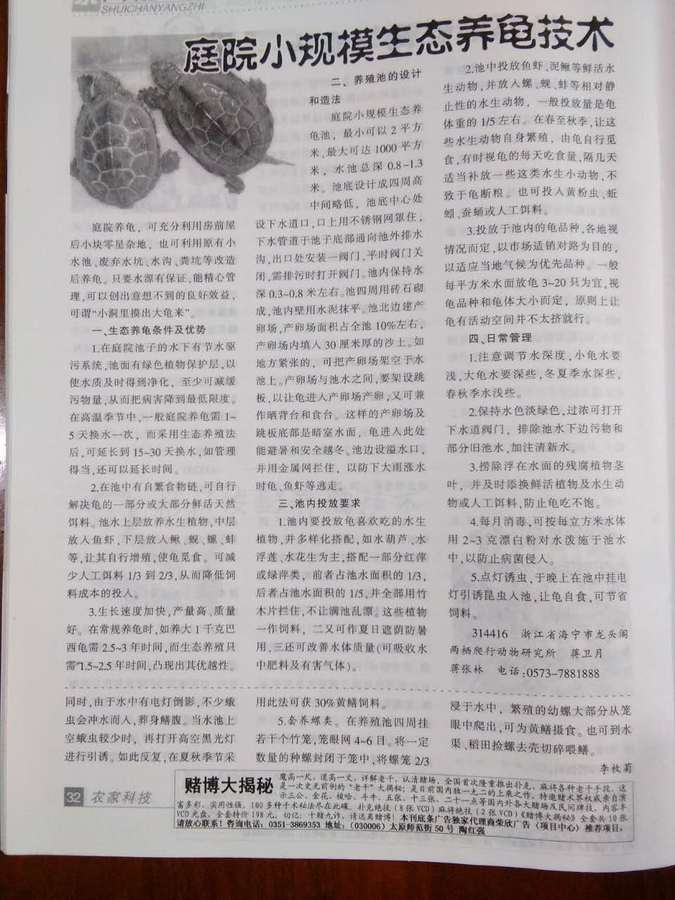 SHUICHANYANGZHI
庭院小规模生态养龟技术
庭院养龟，可充分利用房前屋
后小块零星杂地，也可利用原有小
水池、废弃水坑、水沟、粪坑等改造
后养龟。只要水源有保证，能精心管
理，可以创出意想不到的良好效益，
可谓“小洞里摸出大龟来”。
一、生态养龟条件及优势
1.在庭院池子的水下有节水驱
污系统，池面有绿色植物保护层，以
使水质及时得到净化，至少可减缓
污物量，从而把病害降到最低限度。
在高温季节中，一般庭院养龟需1~
5天换水一次，而采用生态养殖法
后，可延长到15~30天换水，如管理
得当，还可以延长时间。
2.在池中有自繁食物链，可自行
解决龟的一部分或大部分鲜活天然
饵料。池水上层放养水生植物，中层
放入鱼虾，下层放入鳅、蚬、螺、蚌
等，让其自行增殖，使龟觅食。可减
少人工饵料1/3到2/3，从而降低饲
料成本的投入。
3.生长速度加快，产量高、质量
好。在常规养龟时，如养大1千克巴
西龟需2.5~3年时间，而生态养殖只
需1.5~2.5年时间，凸现出其优越性。
二、养殖池的设计
和造法
庭院小规模生态养
龟池，最小可以2平方
米，最大可达1000平方
米，水池总深0.8~1.3
米。池底设计成四周高
中间略低，池底中心处
设下水道口，口上用不锈钢网罩住，
下水管道于池子底部通向池外排水
沟，出口处安装一阀门，平时阀门关
闭，需排污时打开阀门。池内保持水
深0.3~0.8米左右。池四周用砖石砌
成，池内壁用水泥抹平。池北边建产
卵场，产卵场面积占全池10%左右，
产卵场内填入30厘米厚的沙土。如
地方紧张的，可把产卵场架空于水
池上。产卵场与池水之间，要架设跳
板，以让龟进入产卵场产卵，又可兼
作晒背台和食台。这样的产卵场及
跳板底部是暗室水面，龟进入此处
能避暑和安全越冬。池边设溢水口，
并用金属网拦住，以防下大雨涨水
时龟、鱼虾等逃走。
三、池内投放要求
1.池内要投放龟喜欢吃的水生
植物，并多样化搭配，如水葫芦、水
浮莲、水花生为主，搭配一部分红萍
或绿萍类，前者占池水面积的1/3，
后者占池水面积的1/5，并全部用竹
木片拦住，不让满池乱漂。这些植物
一作饲料，二又可作夏日遮荫防暑
用，三还可改善水体质量(可吸收水
中肥料及有害气体)。
2.池中投放鱼虾、泥鳅等鲜活水
生动物，并放入螺、蚬、蚌等相对静
止性的水生动物，一般投放量是龟
体重的1/5左右。在春至秋季，让这
些水生动物自身繁殖，由龟自行觅
食，有时视龟的每天吃食量，隔几天
适当补放一些这类水生小动物，不
致于龟断粮。也可投入黄粉虫、蚯
蚓、蚕蛹或人工饵料。
3.投放于池内的龟品种，各地视
情况而定，以市场适销对路为目的，
以适应当地气候为优先品种。一般
每平方米水面放龟3~20只为宜，视
龟品种和龟体大小而定，原则上让
龟有活动空间并不太挤就行。
四、日常管理
1.注意调节水深度，小龟水要
浅，大龟水要深些，冬夏季水深些，
春秋季水浅些。
2.保持水色淡绿色，过浓可打开
下水道阀门，排除池水下边污物和
部分旧池水，加注清新水。
3.捞除浮在水面的残腐植物茎
叶，并及时添换鲜活植物及水生动
物或人工饵料，防止龟吃不饱。
4.每月消毒，可按每立方米水体
用2~3克漂白粉对水泼施于池水
中，以防止病菌侵入。
5.点灯诱虫，于晚上在池中挂电
灯引诱昆虫入池，让龟自食，可节省
饲料。
314416 浙江省海宁市龙头阁
两栖爬行动物研究所 蒋卫月
蒋张林 电话：0573-7881888
同时，由于水中有电灯倒影，不少蛾
虫会冲水而入，葬身鳝腹。当水池上
空蛾虫较少时，再打开高空黑光灯
进行引诱。如此反复，在夏秋季节采
用此法可获30%黄鳝饲料。
5.套养螺类。在养殖池四周挂
若干个竹笼，笼眼网4~6目。将一定
数量的种螺封闭于笼中，将螺笼2/3
浸于水中，繁殖的幼螺大部分从笼
眼中爬出，可为黄鳝摄食。也可到水
渠、稻田捡螺去壳切碎喂鳝。
李枚菊
32 农家科技
赌博大揭秘
魔高一尺，道高一丈，详解老千，认清赌场，全国首次隆重推出扑克、麻将各种老千手段，这
是一次史无前例的“老千”大揭秘；是目前国内独一无二的上乘之作。特邀赌术界权威亲自演
示三公、金花、梭哈、斗牛、五张、十三张、二十一点等国内外各大赌场及民间牌技，内容丰
富多彩，实用性强，100多种手术秘法尽在此碟。扑克绝技(8张VCD)麻将绝技(2张VCD)《赌博大揭秘》全套共10张
VCD光盘，全套特价198元。切记：十赌九诈，请远离赌博！本刊底条广告独家代理商荣欣广告(项目中心)推荐项目，
请放心联系！咨询电话：0351-3869353 地址：(030006)太原师范街50号 陶红强